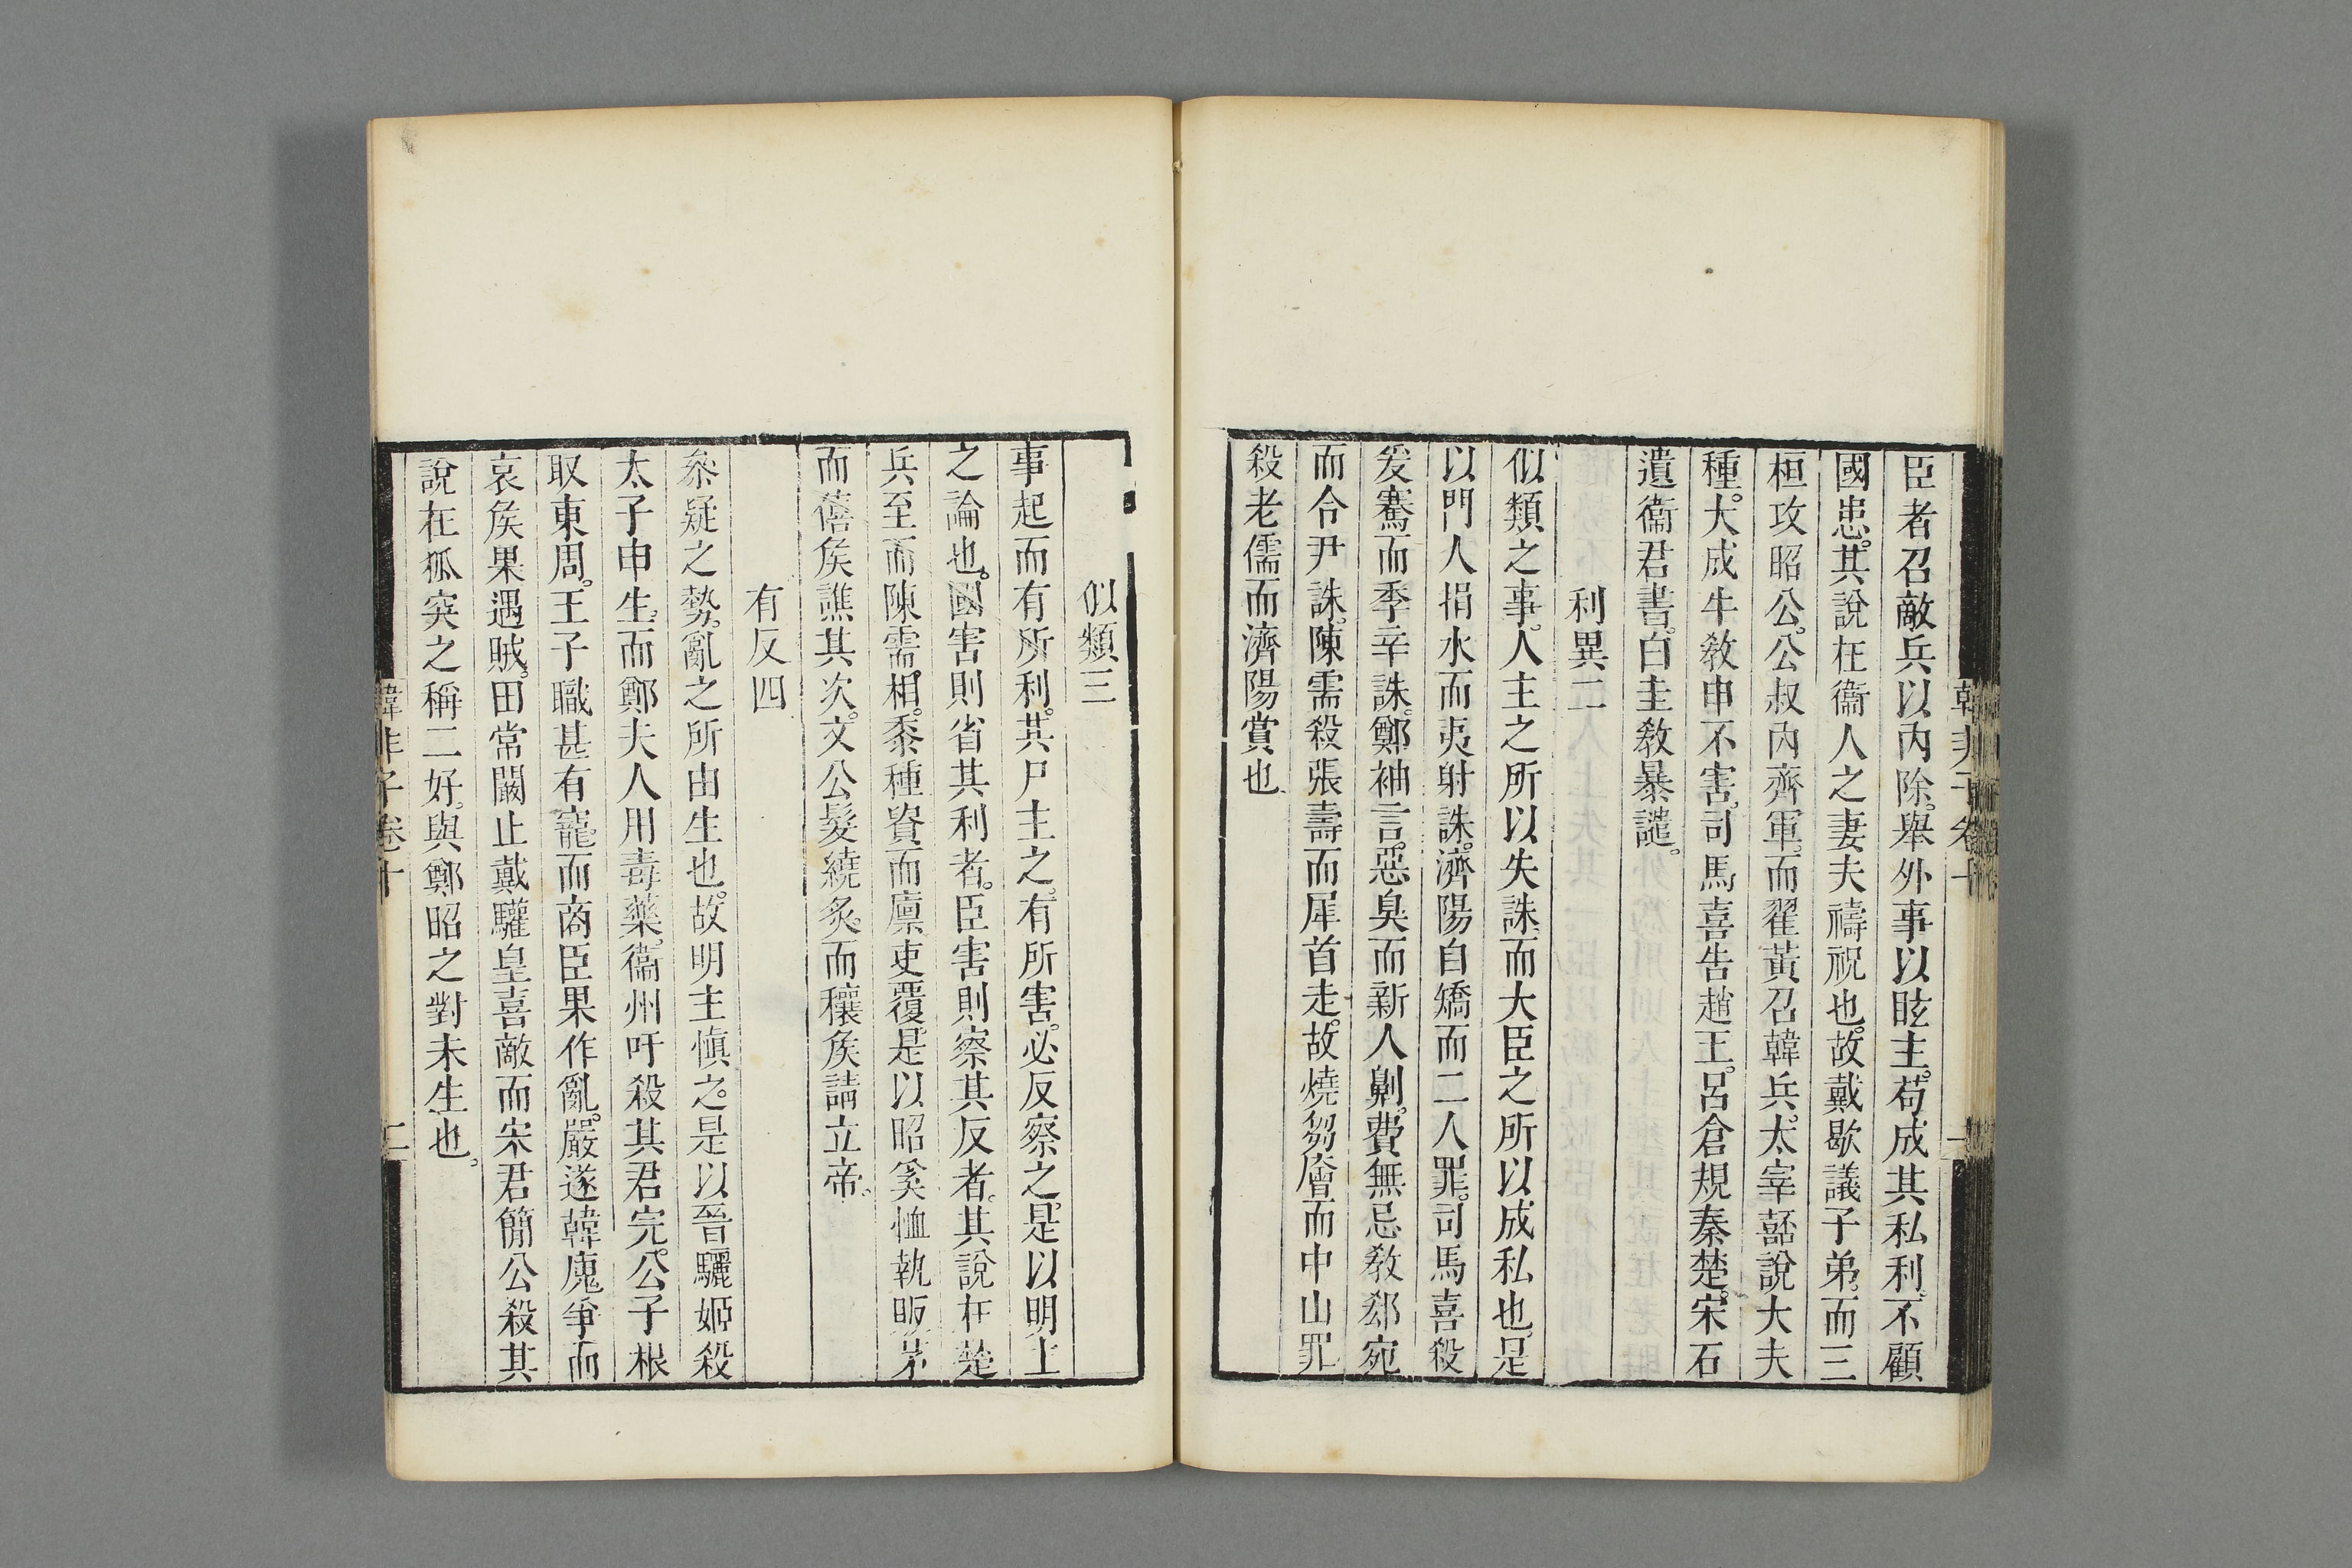 臣者召敵兵以內除。舉外事以眩主。苟成其私利。不顧
國患。其說在衞人之妻夫禱祝也。故戴歇議子弟。而三
桓攻昭公。公叔內齊軍。而翟黃召韓兵。太宰嚭說大夫
種。大成牛敎申不害。司馬喜告趙王。呂倉規秦楚。宋石
遺衞君書。白圭敎暴譴。
利異二
似類之事。人主之所以失誅。而大臣之所以成私也。是
以門人捐水而夷射誅。濟陽自矯而二人罪。司馬喜殺
爰騫而季辛誅。鄭袖言。惡臭而新人劓。費無忌敎郄宛
而令尹誅。陳需殺張壽而犀首走。故燒芻廥而中山罪
殺老儒而濟陽賞也
似類三
事起而有所利。其尸主之。有所害。必反察之。是以明主
之論也。國害則省其利者。臣害則察其反者。其說在楚
兵至而陳需相。黍種貴而廩吏覆。是以昭奚恤執販茅
而僖矦譙其次。文公髮繞炙。而穰矦請立帝。
有反四
叅疑之勢。亂之所由生也。故明主愼之。是以晉驪姬殺
太子申生。而鄭夫人用毒藥。衞州吁殺其君完。公子根
取東周。王子職甚有寵而商臣果作亂。嚴遂韓廆爭而
哀矦果遇賊。田常闞止戴驩皇喜敵而宋君簡公殺其
說在狐突之稱二好。與鄭昭之對未生也。
韓非子卷十
二